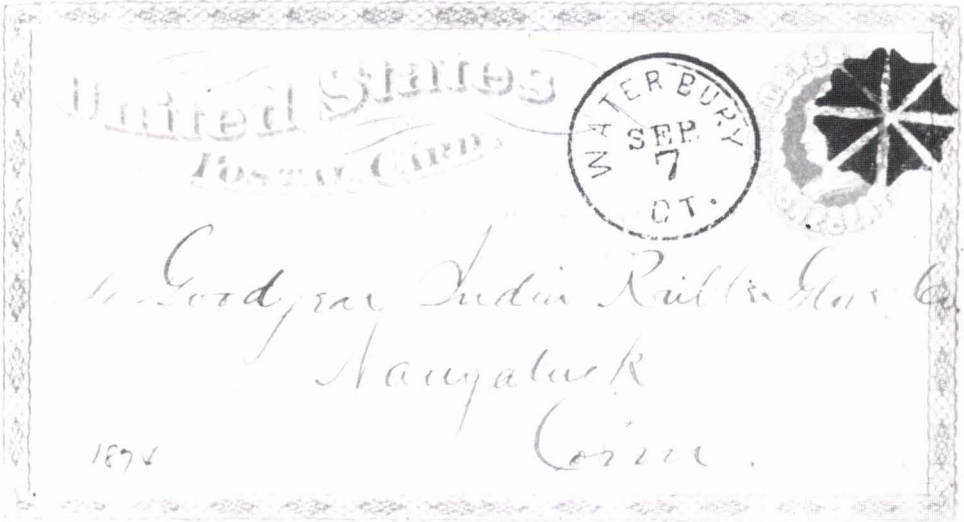 United States
Postal Card.
WATERBURY
SEP.
7
CT.
Goodyear India Rubber Glove Co
Naugatuck
Conn.